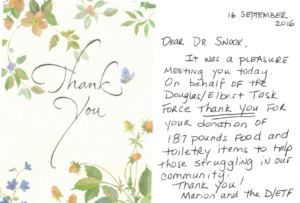 Thank
You
16 SEPTEMBER
2016
DEAR DR SNOOK,
IT WAS A PLEASURE
MEETING YOU TODAY.
ON behalf OF the
Douglas/Elbert TASK
FORCE Thank You FOR
YOUR donation OF
187 pounds Food and
toiletry items to help
those struggling in our
community.
Thank you!
Marion and the D/ETF